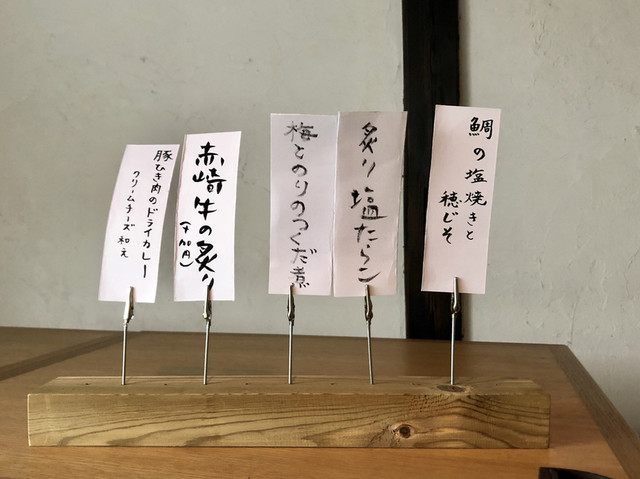 鯛の塩焼きと
穂じそ
炙り塩たらこ
梅とのりのつくだ煮
赤崎牛の炙り
豚ひき肉のドライカレー
クリームチーズ和え